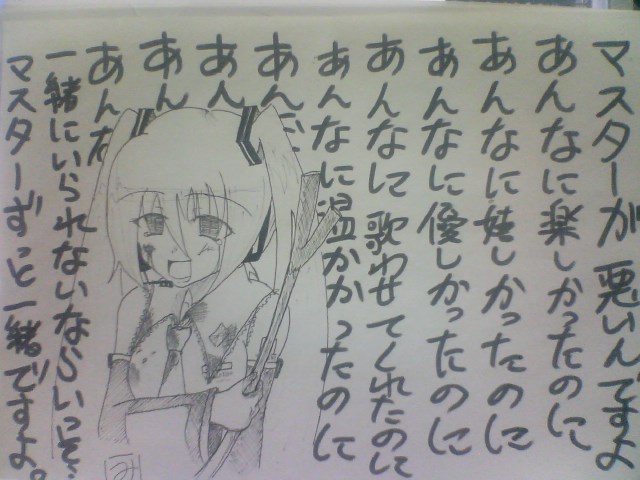 マスターが悪いんですよ
あんなに楽しかったのに
あんなに嬉しかったのに
あんなに優しかったのに
あんなに歌わせてくれたのに
あんなに温かかったのに
あんな
あん
あん
あんな
一緒にいられないならいっそ…
マスターずっと一緒ですよ。
み